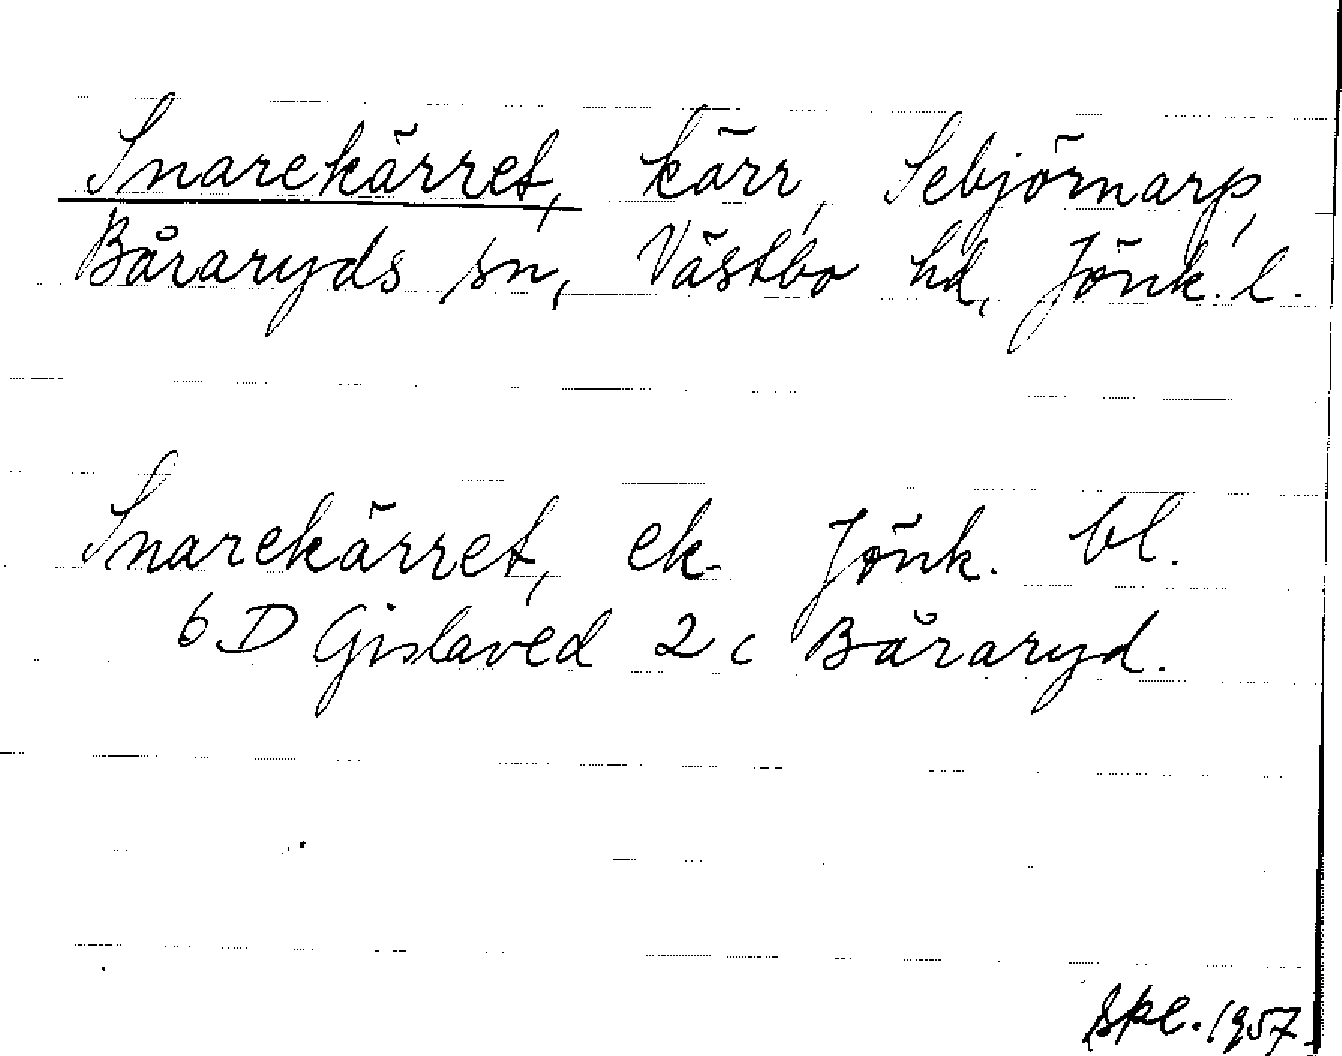 Snarekärret, kärr, Sebjörnarp,
Båraryds sn, Västbo hd, Jönk. l.
Snarekärret, ek. Jönk. bl.
6 D Gislaved 2 c Båraryd.
Spl. 1957